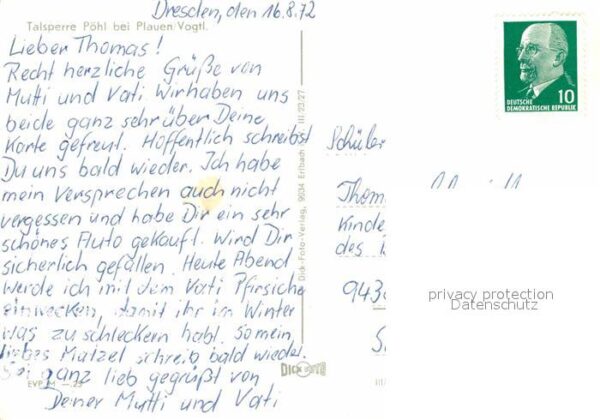 Dresden, den 16.8.72
Talsperre Pöhl bei Plauen/Vogtl.
Lieber Thomas!
Recht herzliche Grüße von
Mutti und Vati Wir haben uns
beide ganz sehr über Deine
Karte gefreut. Hoffentlich schreibst
Du uns bald wieder. Ich habe
mein Versprechen auch nicht
vergessen und habe Dir ein sehr
schönes Auto gekauft. Wird Dir
sicherlich gefallen. Heute Abend
werde ich mit dem Vati Pfirsiche
einwecken, damit ihr im Winter
was zu schleckern habt. So mein
liebes Matzel schreib bald wieder.
Sei ganz lieb gegrüßt von
Deiner Mutti und Vati
EVP M -.25
Dick-Foto-Verlag, 9934 Erlbach III 23/27
DICK FOTO
DEUTSCHE
DEMOKRATISCHE REPUBLIK
10
Schüler
Thom
Kinde
des
943
privacy protection
Datenschutz